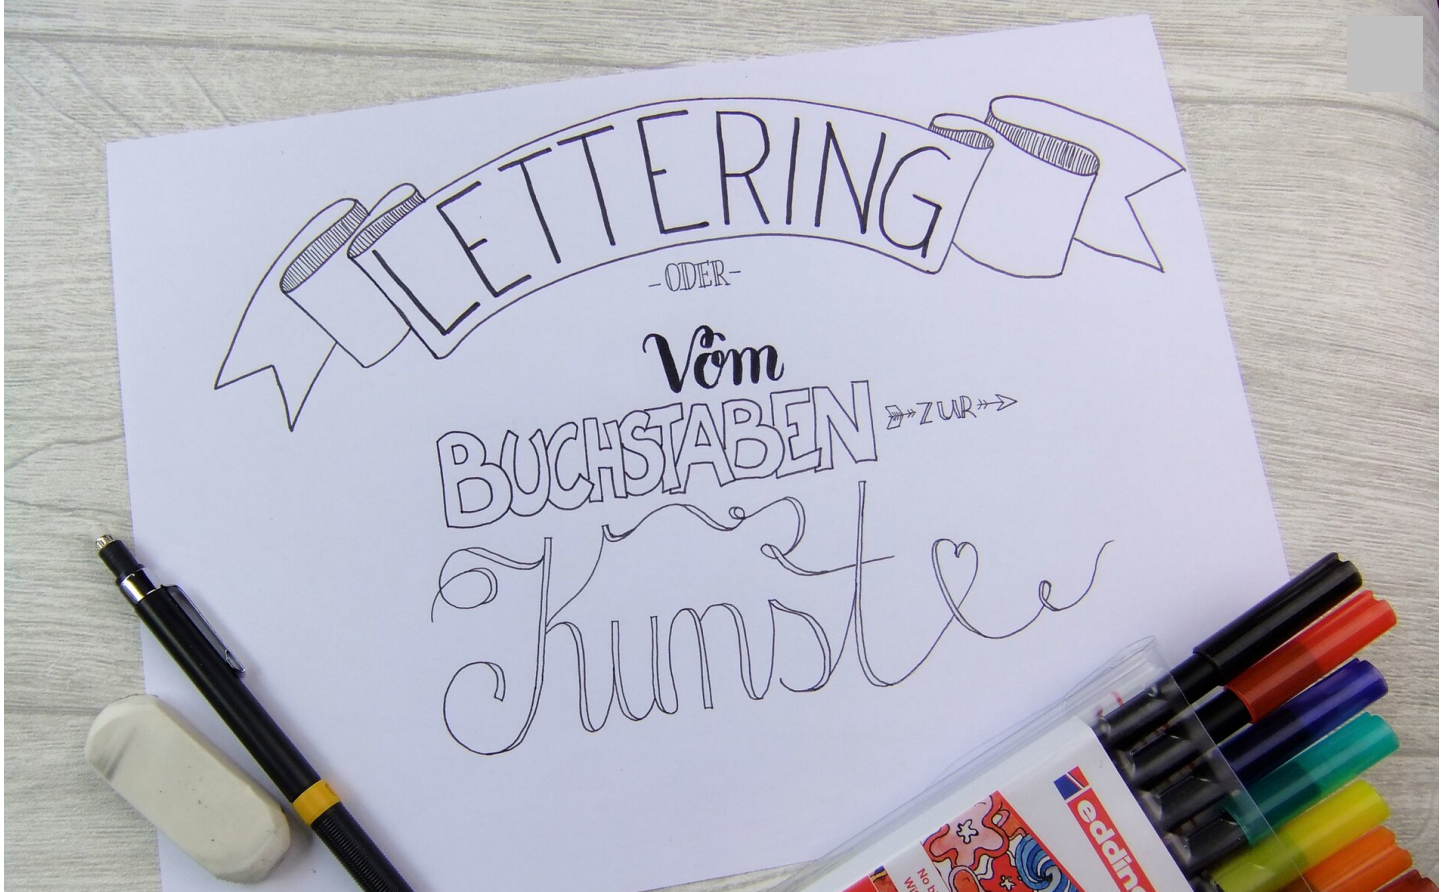 LETTERING
-ODER-
Vom
BUCHSTABEN
ZUR
Kunst
edding